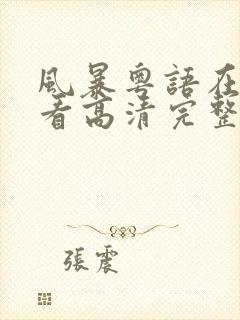 風暴粵語在
看高清完整
張震